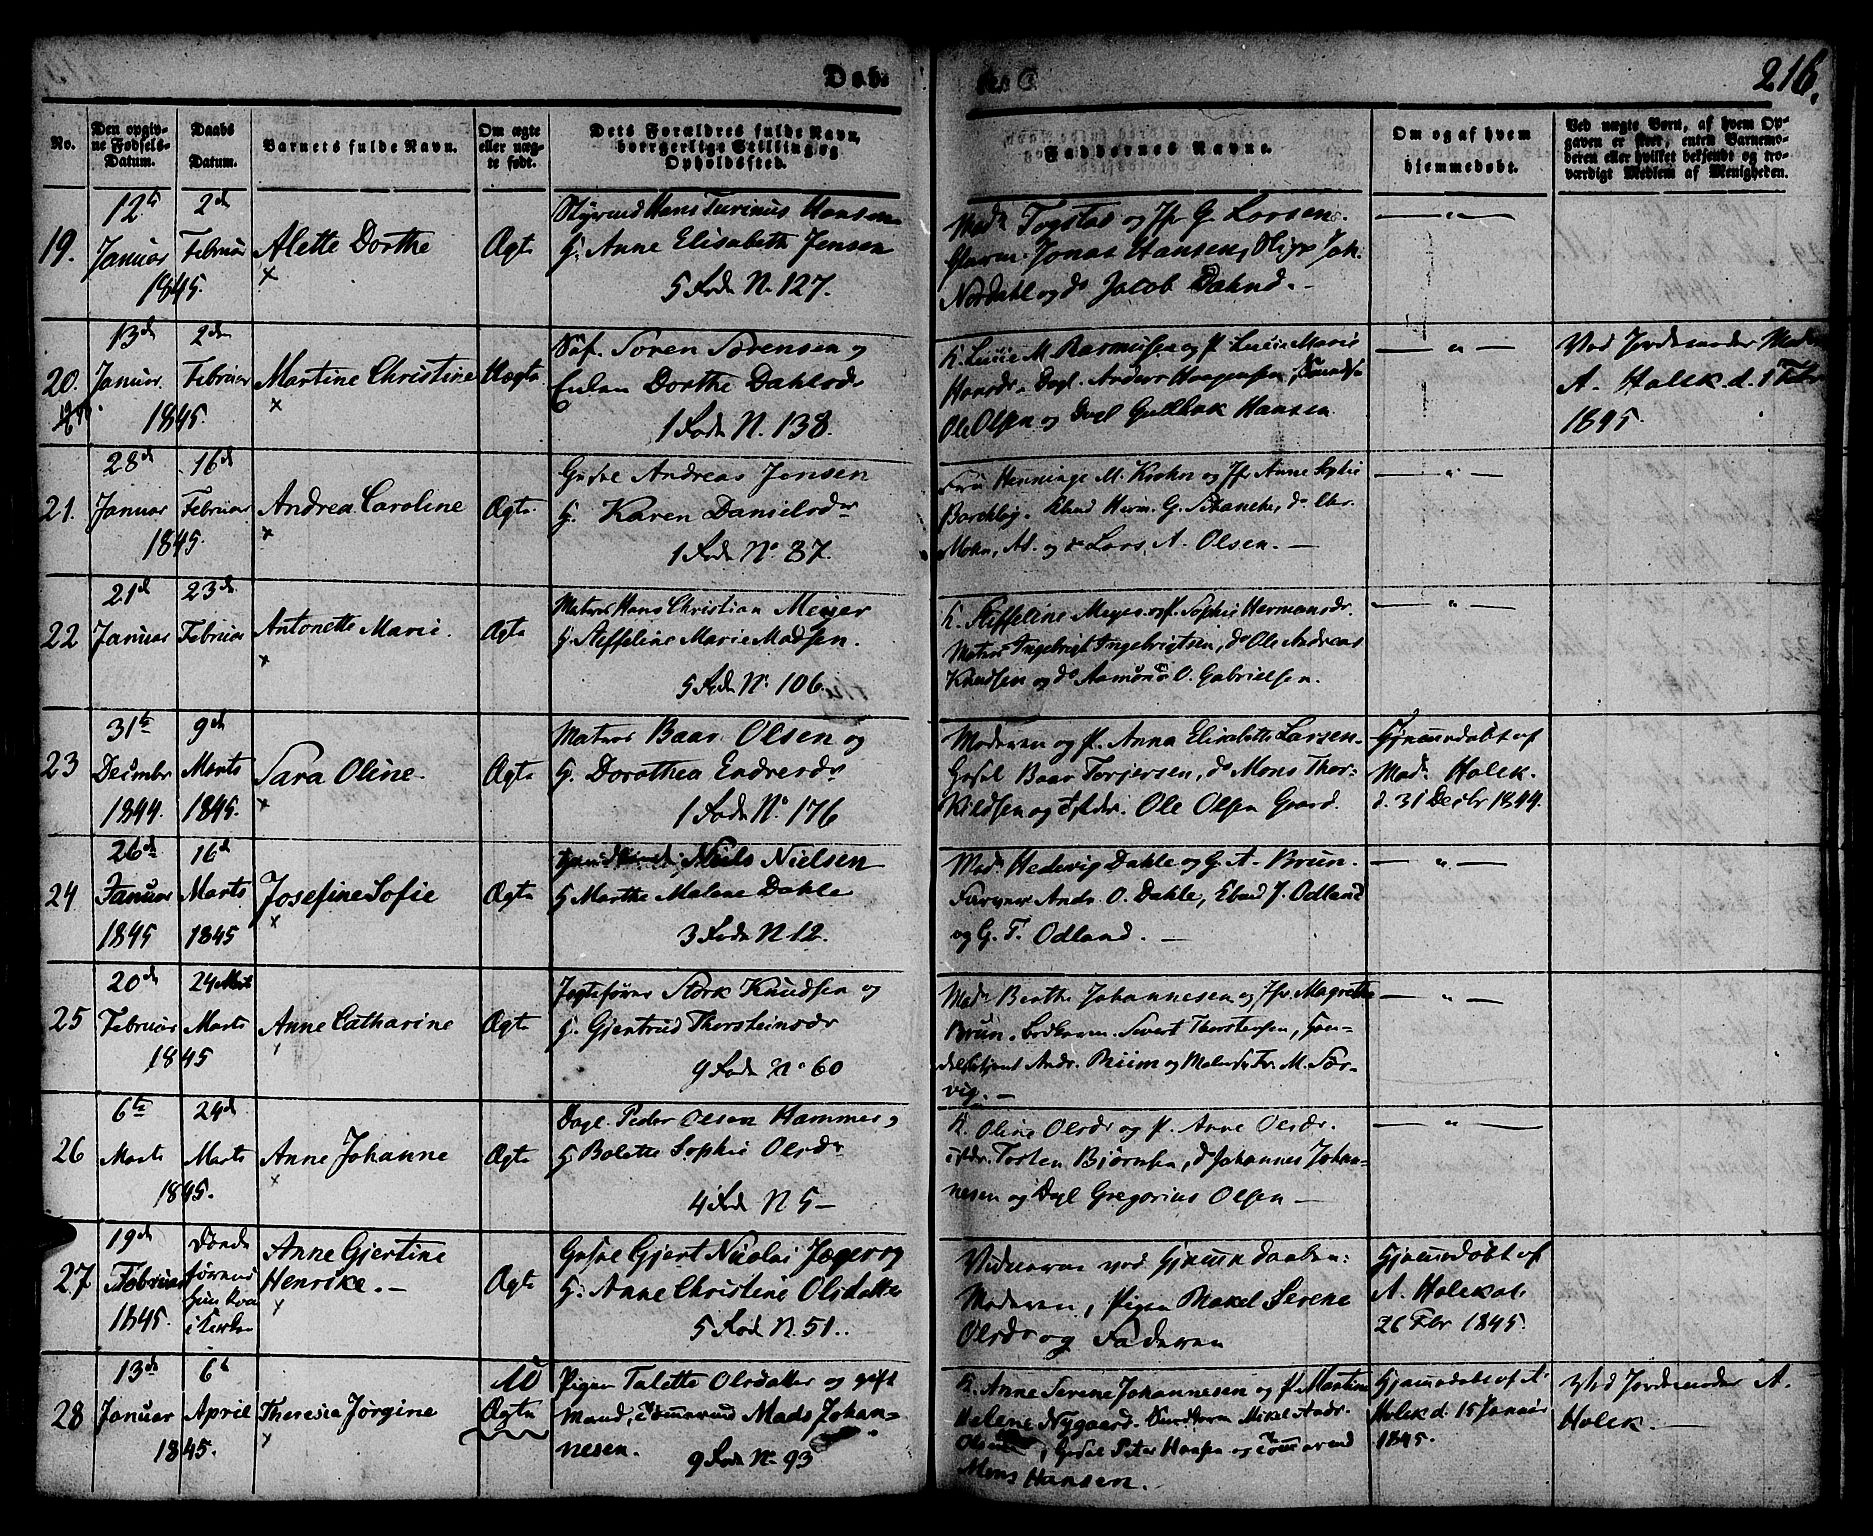 Døb-
216.
No.
Den opgiv-
ne Fødsels-
Datum.
Daabs
Datum.
Barnets fulde Navn.
Om ægte
eller uæg-
te født.
Dets Forældres fulde Navn,
borgerlige Stilling og
Opholdssted.
Faddernes Navne.
Om og af hvem
hjemmedøbt.
Ved uægte Børn, af hvem Op-
gaven er skeet, enten Barnemo-
deren eller hvilket bekjendt og tro-
værdigt Medlem af Menigheden.
19.
12te
Januar
2den
Februar
1845.
Alette Dorthe
Ægte
Hans Turinus Hansen
H. Anne Elisabeth Jensen
5 Rode N. 127.
Mad. Togstad og Jfr G. Larsen.
Jonas Hansen,
Nordahl og do Jacob
20.
13de
Januar
2den
Februar
1845.
Martine Christine
Uægte
Søf. Søren Sørensen og
Enken Dorthe Dahlsdr
1 Rode N. 138.
K. Lucie M. Rasmussen og P. Lucie Marie
Hansdr. Dagl. Anders Haagensen,
Ole Olsen og Dagl Gulbrak Hansen
Ved Jordemoder Mad.
A. Holck d. 1 Febr
1845.
21.
28de
Januar
16de
Februar
1845.
Andrea Caroline
Ægte
Andreas Jensen
H. Karen Danielsdr
1 Rode No 37.
Fru Henninge M. Krohn og Jfr Anne Sophie
Herm. G. Schancke, do Chr.
Mohn, A. og do Lars A. Olsen. —
22
21de
Januar
23de
Februar
Antonette Marie.
Ægte
Matros Hans Christian Meyer
H. Steffeline Marie Madsen.
5 Rode No 106.
K. Steffeline Meyer og P. Sophie Hermansdr.
Matros Ingebrigt Ingebrigtsen, do Ole Andreas
Knudsen og do O. Gabrielsen.
23
31te
Decembr
1844.
9de
Marts
1845.
Sara Oline.
Ægte
Matros Baar Olsen og
H. Dorothea Endresdr
1 Rode No 176
Moderen og P. Anna Elisabeth Larsen.
Baar Torjersen, do Mons Thor-
kildsen og Ole Olsen Gaard.
Hjemmedøbt af
Mad. Holck.
d. 31 Decbr 1844.
24
26de
Januar
1845
16de
Marts
1845
Josefine Sofie
Ægte
Niels Nielsen
H Marthe Malene Dahle
3 Rode N 12.
Mad. Hedevig Dahle og G. A. Brun.
Andr. O. Dahle, J. Odland
og G. T. Odland. —
25
20de
Februar
24 Marts
Marts
1845
Anne Catharine
Ægte
Jægtefører Stork Knudsen og
H. Gjertrud Thorsteinsdr
9 Rode No 60
Mad. Berthe Johannesen og Jfr Magrethe
Brun. Sivert Thorstensen, Han-
delsbetjent Andr. Riim og Fr. M. Sør-
vig. —
26
6te
Marts
24de
Marts
1845.
Anne Johanne
Ægte
Dagl. Peder Olsen Hammer,
H Bolette Sophie Olsdr
4 Rode N 5 —
K. Oline Olsdr og P. Anne Olsdr.
Torsten Bjørnsen, do Johannes Johan-
nesen og Dagl Gregorius Olsen —
27
19de
Februar
1845.
Døde
førend
hun kom
i Kirken
Anne Gjertine
Henrike. —
Ægte
Gjert Nicolai Jæger og
H. Anne Christine Olsdatter
5 Rode N. 51.
Vidnerne ved Hjemmedaaben:
Moderen, Pigen Serene
Olsdr og Faderen
Hjemmedøbt af
A. Holck d.
26 Febr 1845.
28
13de
Januar
6te
April
1845.
Theresia Jørgine
U
Ægte
Pigen Talette Olsdatter og gift
Mand, Tømmermd Mads Johan-
nesen.
9 Rode No 93
K. Anne Serene Johannesen og P. Martine
Helene Nygaard. Mikel Andr.
Olsen, Peter Hansen og Tømmermd
Mons Hansen.
Hjemmedøbt af A.
Holck d. 15 Januar
1845.
Ved Jordemoder A.
Holck. —